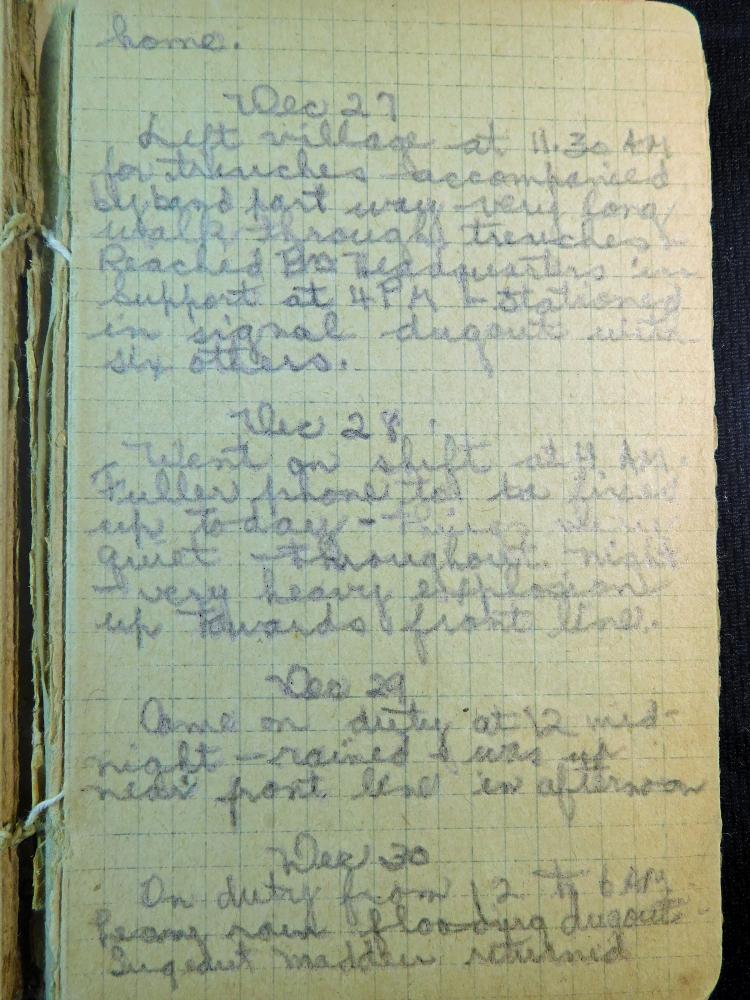 home.
Dec 27
Left village at 11.30 AM
for trenches - accompanied
by band part way - very long
walk through trenches -
Reached Bn Headquarters in
support at 4 PM - Stationed
in signal dugout with
six others.
Dec 28
Went on shift at 4 AM.
Fuller phone to be fixed
up today - Things very
quiet - throughout night
- very heavy explosion
up towards front line.
Dec 29
Came on duty at 12 mid-
night - rained & was up
near front line in afternoon
Dec 30
On duty from 12 to 6 AM
heavy rain flooding dugout
Sergeant Madden returned